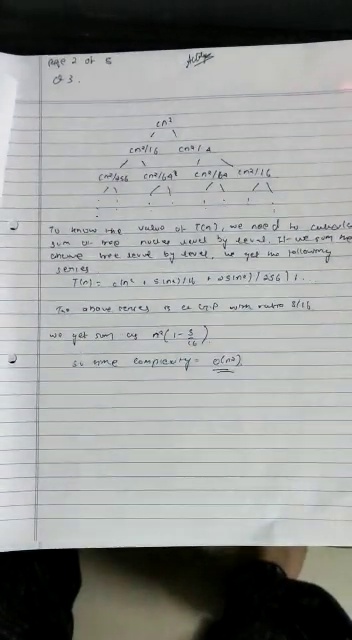 Page 2 of 5
Q3.
cn²
cn²/16 cn²/4
cn²/256 cn²/64 cn²/64 cn²/16
To know the value of T(n), we need to calculate
sum of tree nodes level by level. If we sum the
above tree level by level, we get the following
series
T(n) = c(n² + 5(n²)/16 + 25(n²)/256) +
The above series is a G.P with ratio 5/16
we get sum as n²(1 - 5/16)
so time complexity = O(n²)